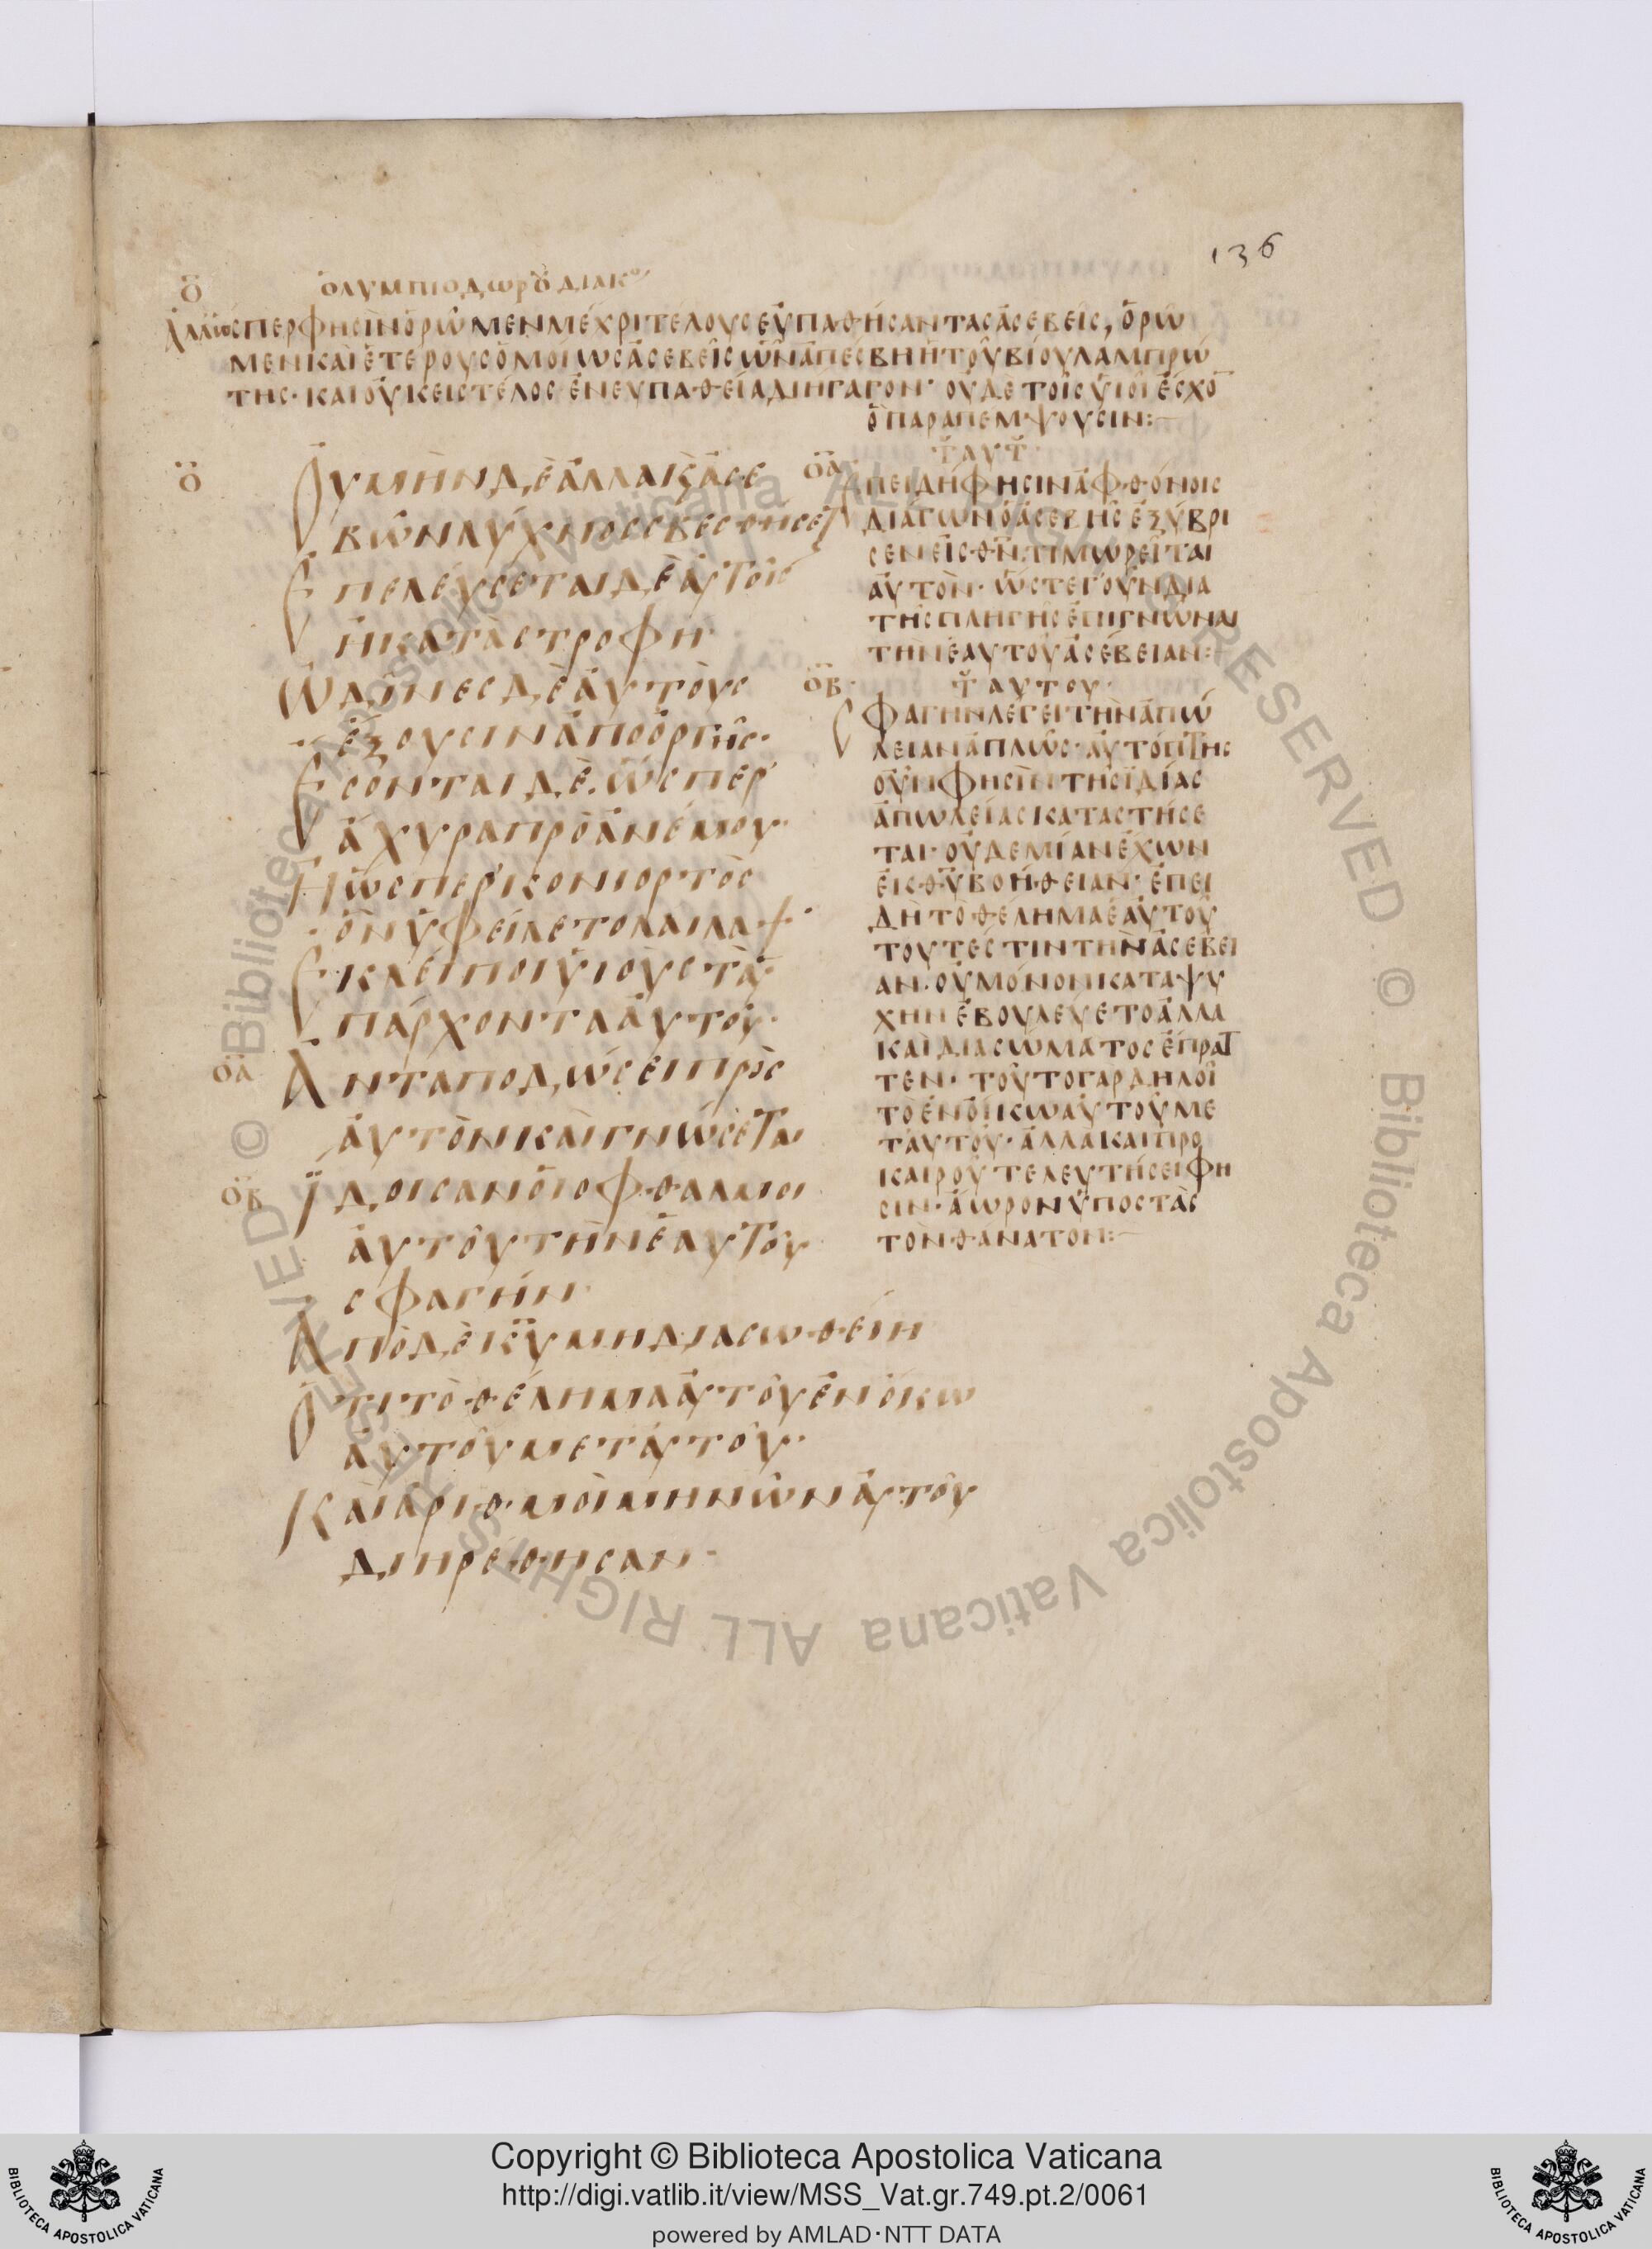 136
ο̈ ὀλυμπιοδώρου διακο
Ἀλλ' ὥσπερ φησὶν ὁρῶμεν μέχρι τέλους εὐπαθήσαντας ἀσεβεῖς, ὁρῶ
μεν καὶ ἑτέρους ὁμοίως ἀσεβεῖς ὧν ἀπέσβη ἡ τοῦ βίου λαμπρό
της· καὶ οὐκ εἰς τέλος ἐν εὐπαθεία διήγαγον· οὐδὲ τοῖς υἱοῖ ἔσχο
ὃ παραπέμψουσιν:
ο̈ Οὐ μὴν δὲ ἀλλὰ ϗ ἀσε
βῶν λύχνος σβεσθήσετ
Ἐπελεύσεται δὲ ἀυτοῖς
ἡ καταστροφή
Ὠδῖνες δὲ ἀυτοὺς
ἕξουσιν ἀπὸ ὀργῆς·
Ἔσονται δὲ ὥσπερ
ἄχυρα πρὸ ἀνέμου·
Ἢ ὥσπερ κονιορτὸς
ὃν ὑφείλετο λαῖλαψ·
Ἐκλείποι υἱοὺς τὰ ὑ
πάρχοντα ἀυτοῦ·
ο̈α Ἀνταποδώσει πρὸς
ἀυτὸν καὶ γνώσεται
ο̈β Ἴδοισαν ὁι ὀφθαλμοι
ἀυτοῦ τὴν ἑαυτου
σφαγήν·
Ἀπὸ δὲ κ̅υ̅ μὴ διασωθείη
Ὅτι τὸ θέλημα ἀυτοῦ ἐν ὄικω
ἀυτοῦ μετ' ἀυτοῦ·
Καὶ ἀριθμοὶ μηνῶν ἀυτοῦ
διηρέθησαν·
ο̈α τ αυτ
Ἐπειδή φησιν ἀφθόνοις
διάγων ὁ ἀσεβὴς ἐξύβρι
σεν εἰς θ̅ν̅· τιμωρεῖται
ἀυτὸν· ὥστε γοῦν δια
τῆς πληγῆς ἐπιγνῶναι
τὴν ἑαυτοῦ ἀσέβειαν:
ο̈β· τ αυτου·
Σφαγὴν λέγει τὴν ἀπώ
λειαν ἁπλῶς· ἀυτόπτης
οὖν φησὶν τῆς ἰδίας
ἀπωλείας καταστήσε
ται· οὐδεμίαν ἔχων
ἐκ θ̅υ̅ βοήθειαν· ἐπει
δὴ τὸ θέλημα ἑαυτοῦ
τουτέστιν τὴν ἀσέβει
αν· οὐ μόνον κατὰ ψυ
χὴν ἐβουλεύετο ἀλλα
καὶ διὰ σώματος ἔπρατ
τεν· τοῦτο γὰρ δηλοῖ
τὸ ἐν οἴκω αὐτοῦ με
τ' αυτοῦ· ἀλλὰ καὶ προ
καιροῦ τελευτήσει φη
σιν· ἄωρον ὑποστὰς
τὸν θάνατον:
Biblioteca Apostolica Vaticana ALL RIGHTS RESERVED ©
Copyright © Biblioteca Apostolica Vaticana
http://digi.vatlib.it/view/MSS_Vat.gr.749.pt.2/0061
powered by AMLAD·NTT DATA
BIBLIOTECA APOSTOLICA VATICANA
BIBLIOTECA APOSTOLICA VATICANA